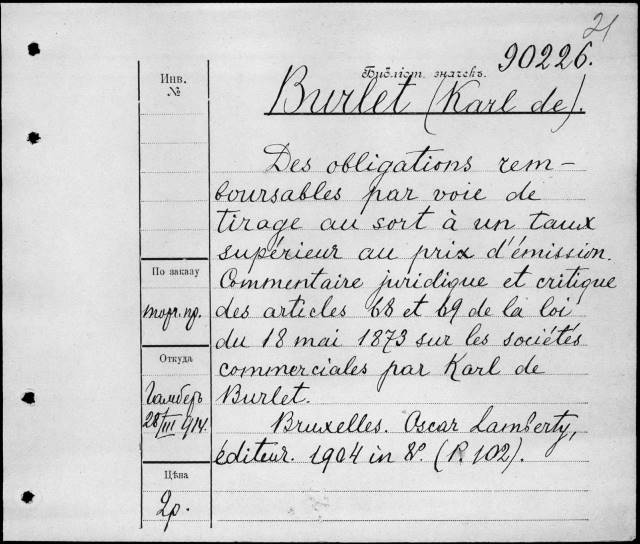 21
90226.
Библіот. значекъ.
Burlet (Karl de).
Инв.
№
Des obligations rem-
boursables par voie de
tirage au sort à un taux
supérieur au prix d'émission.
Commentaire juridique et critique
des articles 68 et 69 de la loi
du 18 mai 1873 sur les sociétés
commerciales par Karl de
Burlet.
Bruxelles. Oscar Lamberty,
éditeur. 1904 in 8°. (P. 102).
По заказу
торг. пр.
Откуда
Гамберъ
28/III 1914.
Цѣна
2р.